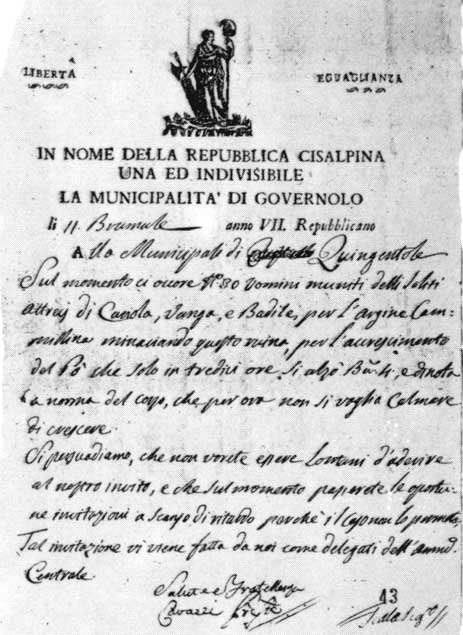 LIBERTÀ EGUAGLIANZA
IN NOME DELLA REPUBBLICA CISALPINA
UNA ED INDIVISIBILE
LA MUNICIPALITA' DI GOVERNOLO
li 11. Brumale anno VII. Repubblicano
Alla Municipale di Quingentole
Sul momento ci ocore N.o 80 uomini muniti delli soliti
attrej di Cariola, Vanga, e Badile, per l'argine Cam-
minaciando questo ruina, per l'acrescimento
del Pò che solo in tredici ore si alzò Ba. 4, e dinota
la norma del corpo, che per ora non si voglia Calmare
di crescere.
Si persuadiamo, che non vorete essere Lontani d'aderire
al nostro invito, e che sul momento passarete le oportu-
ne invitazioni a scanso di ritardo perchè il Caso non lo permette
Tal invitazione vi viene fatta da noi come delegati dell'ammd.
Centrale.
Salute e Fratellanza
Cavazzi
43